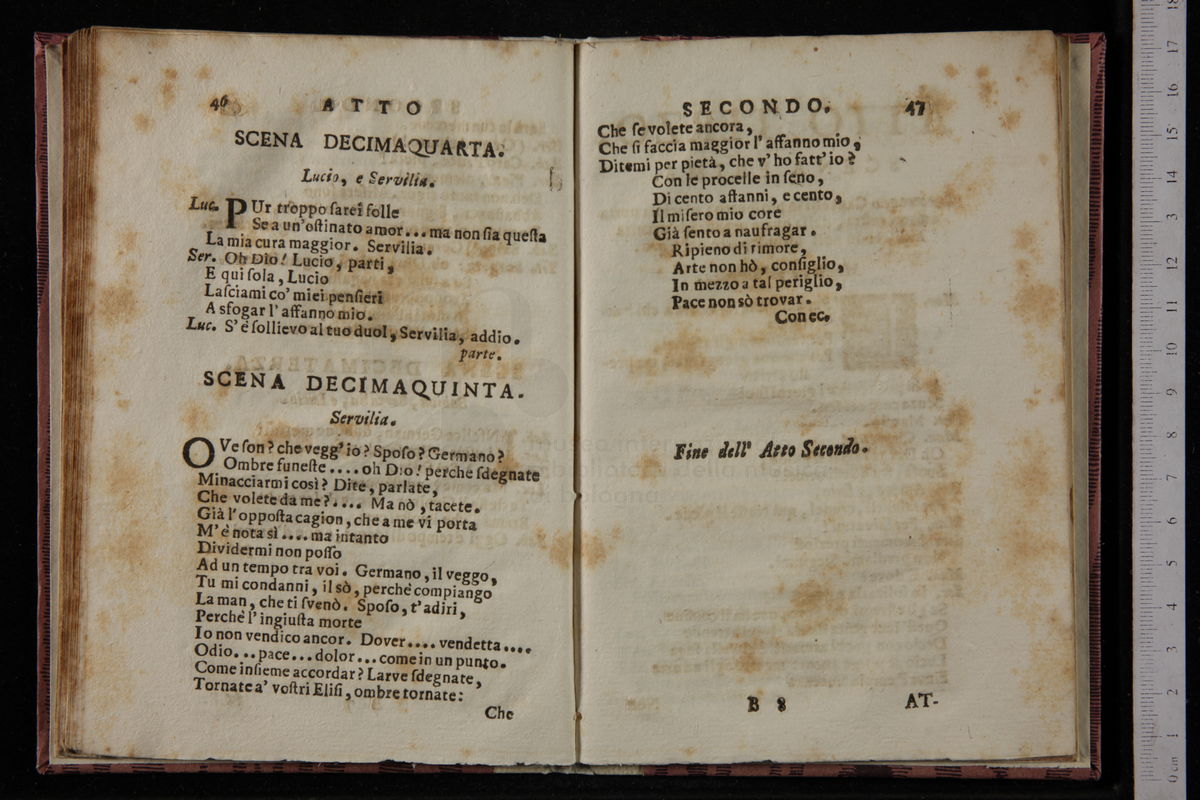 46 ATTO
SCENA DECIMAQUARTA.
Lucio, e Servilia.
Luc. PUr troppo ſarei folle
Se a un' oſtinato amor... ma non ſia queſta
La mia cura maggior. Servilia.
Ser. Oh Dio! Lucio, parti,
E qui ſola, Lucio
Laſciami co' miei penſieri
A sfogar l' affanno mio.
Luc. S' è ſollievo al tuo duol, Servilia, addio.
parte.
SCENA DECIMAQUINTA.
Servilia.
OVe ſon? che vegg' io? Spoſo? Germano?
Ombre funeſte .... oh Dio! perchè ſdegnate
Minacciarmi così? Dite, parlate,
Che volete da me? .... Ma nò, tacete.
Già l' oppoſta cagion, che a me vi porta
M' è nota sì .... ma intanto
Dividermi non poſſo
Ad un tempo tra voi. Germano, il veggo,
Tu mi condanni, il sò, perchè compiango
La man, che ti ſvenò. Spoſo, t' adiri,
Perchè l' ingiuſta morte
Io non vendico ancor. Dover.... vendetta....
Odio... pace... dolor... come in un punto.
Come inſieme accordar? Larve ſdegnate,
Tornate a' voſtri Eliſi, ombre tornate:
Che
SECONDO. 47
Che ſe volete ancora,
Che ſi faccia maggior l' affanno mio,
Ditemi per pietà, che v' ho fatt' io?
Con le procelle in ſeno,
Di cento affanni, e cento,
Il miſero mio core
Già ſento a naufragar.
Ripieno di timore,
Arte non hò, conſiglio,
In mezzo a tal periglio,
Pace non sò trovar.
Con ec.
Fine dell' Atto Secondo.
B 8 AT-
0 cm 1 2 3 4 5 6 7 8 9 10 11 12 13 14 15 16 17 18